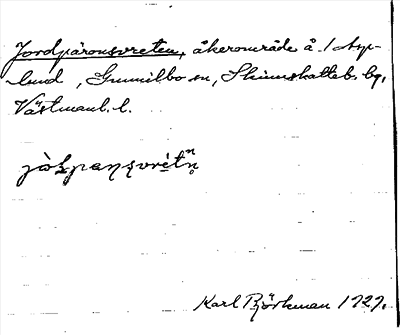 Jordpäronsvreten, åkerområde å 1 Asp-
lund, Gunnilbo sn, Skinnskatteb. bg,
Västmanl. l.
Karl Björkman 1927.